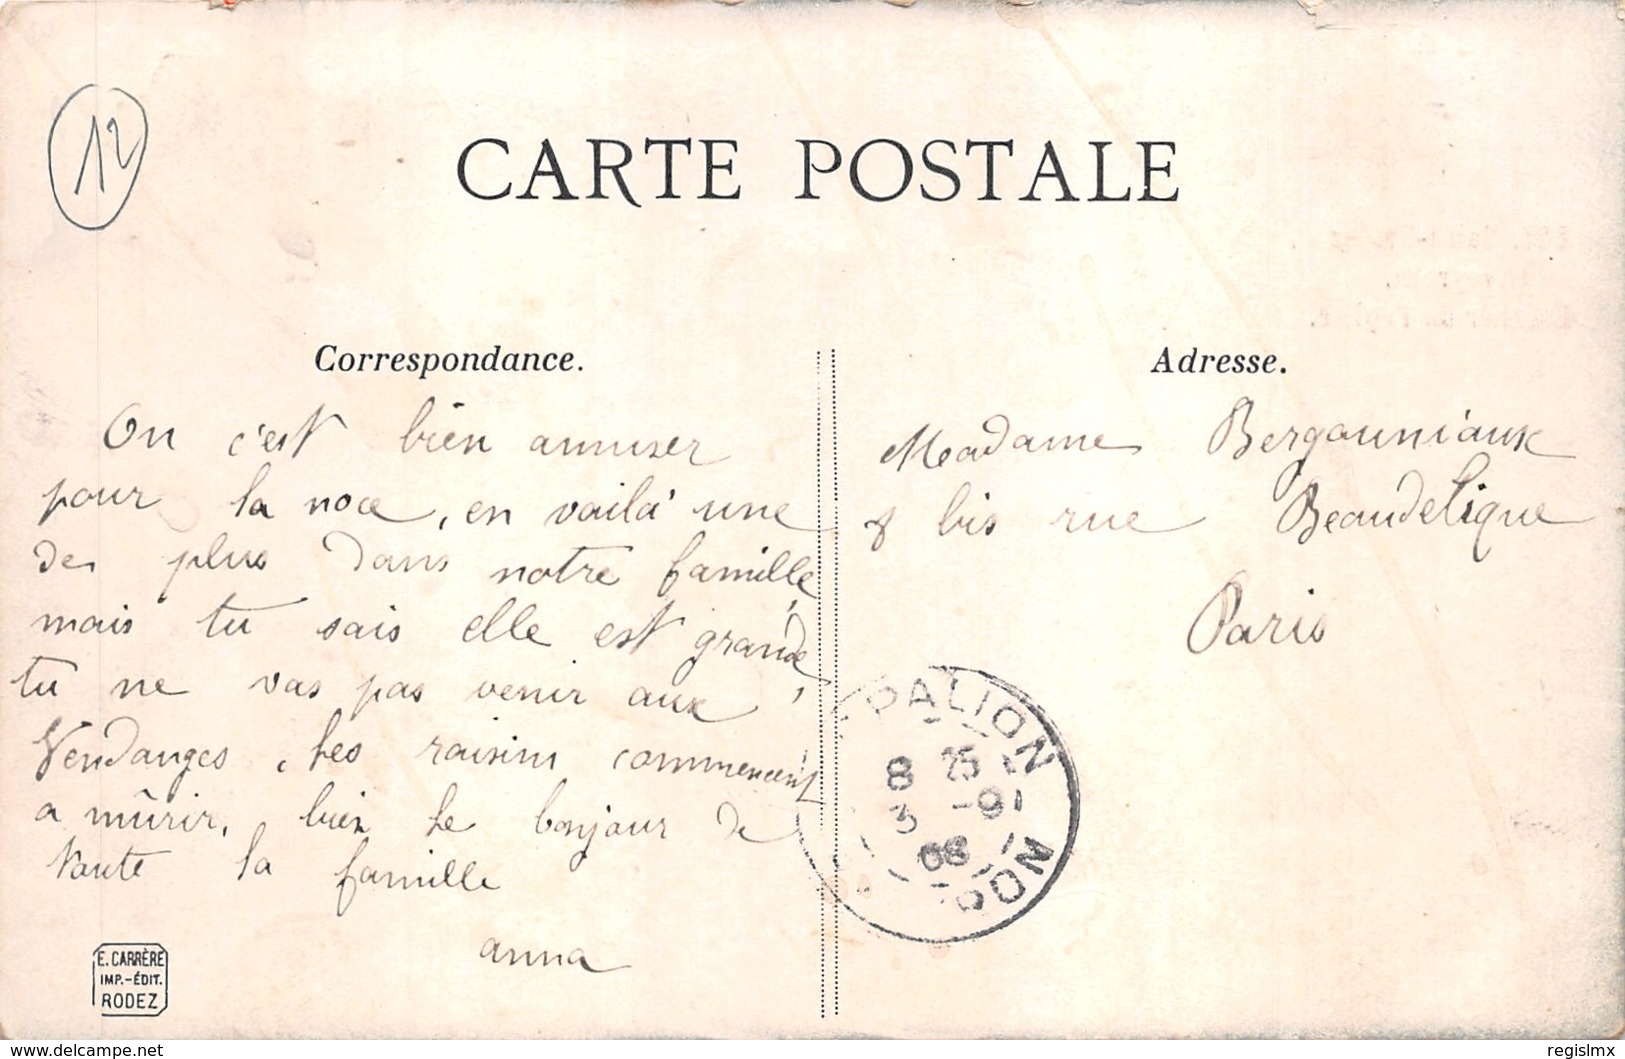 12
CARTE POSTALE
Correspondance.
On c'est bien amuser
pour la noce, en voilà une
de plus dans notre famille,
mais tu sais elle est grande,
tu ne vas pas venir aux
Vendanges, les raisins commencent
a mûrir, bien le bonjour de
toute la famille
anna
E. CARRÈRE
IMP.-ÉDIT.
RODEZ
Adresse.
Madame Bergouniaux
8 bis rue Beaudelique
Paris
PALION
8 25
3 -9-
08
RON
delcampe.net
regislmx